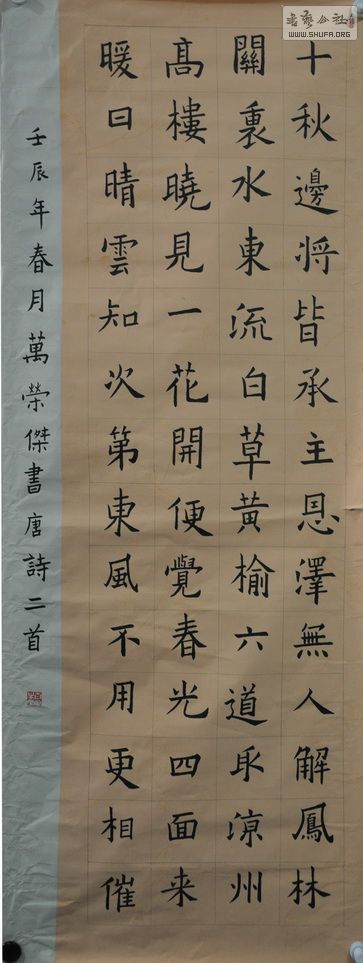 十秋邊將皆承主恩澤無人解鳳林
關裏水東流白草黃榆六道取涼州
髙樓曉見一花開便覺春光四面来
暖日晴雲知次第東風不用更相催
壬辰年春月萬榮傑書唐詩二首
書藝公社
WWW.SHUFA.ORG